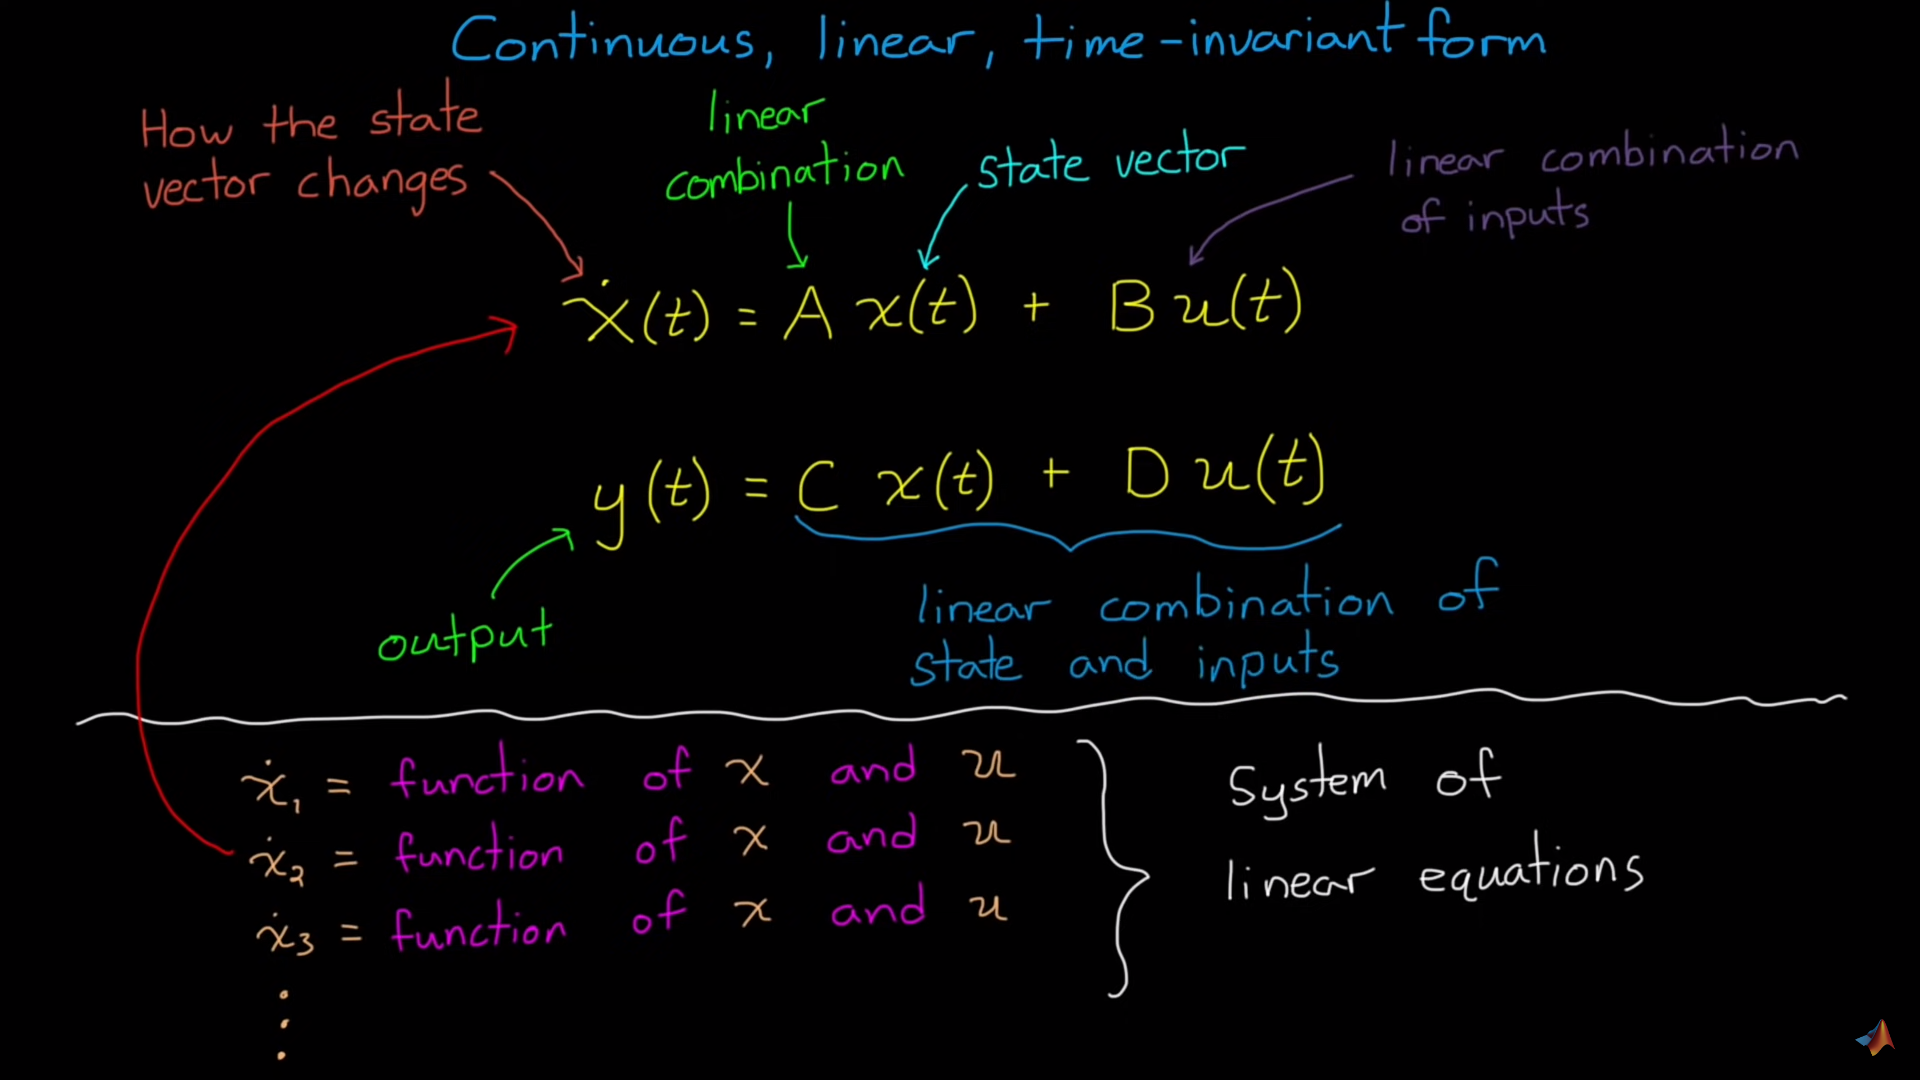 Continuous, linear, time-invariant form
How the state
vector changes
linear
combination
state vector
linear combination
of inputs
ẋ(t) = A x(t) + B u(t)
y(t) = C x(t) + D u(t)
output
linear combination of
state and inputs
ẋ₁ = function of x and u
ẋ₂ = function of x and u
ẋ₃ = function of x and u
System of
linear equations